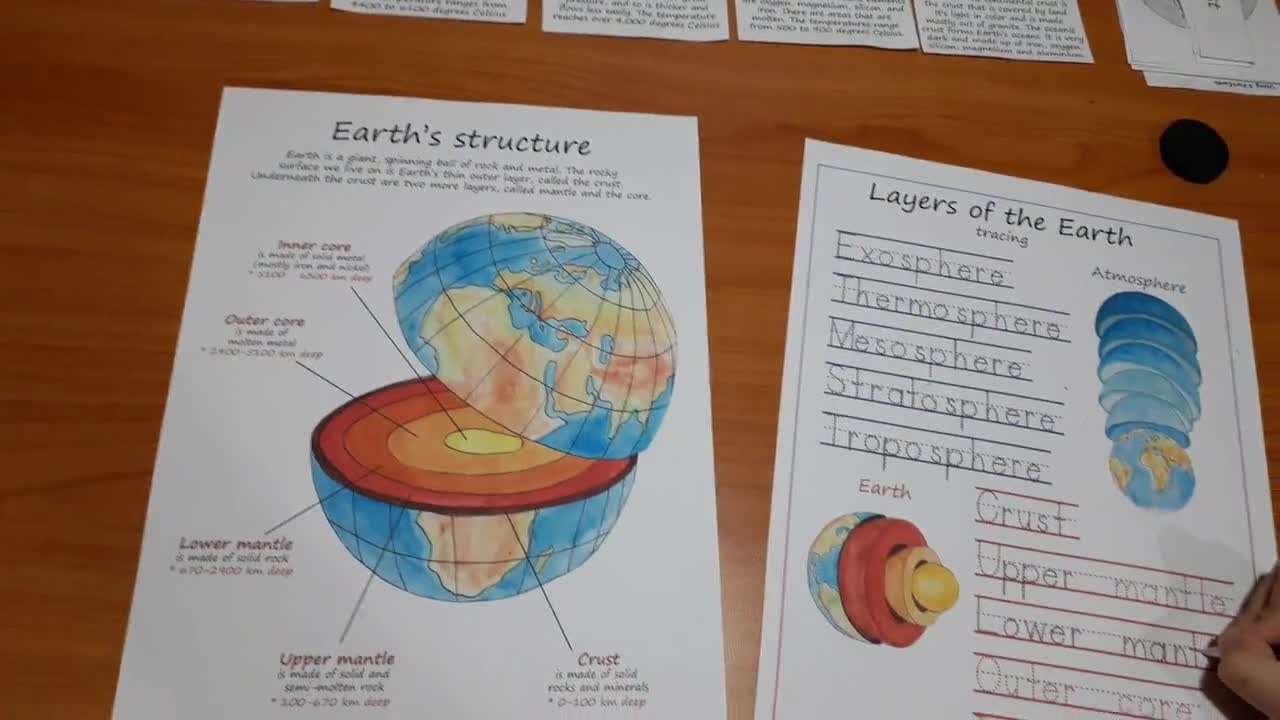 4400 to 6100 degrees Celsius
reaches over 4,000 degrees Celsius
are oxygen, magnesium, silicon, and
iron. There are areas that are
molten. The temperatures range
from 500 to 900 degrees Celsius.
the crust that is covered by land.
It's light in color and is made
mostly out of granite. The oceanic
crust forms Earth's oceans. It is very
dark and made up of iron, oxygen,
silicon, magnesium and aluminium.
Earth's structure
Earth is a giant, spinning ball of rock and metal. The rocky
surface we live on is Earth's thin outer layer, called the crust
Underneath the crust are two more layers, called mantle and the core.
Inner core
is made of solid metal
(mostly iron and nickel)
* 5100 - 6300 km deep
Outer core
is made of
molten metal
* 2900-5100 km deep
Lower mantle
is made of solid rock
* 670-2900 km deep
Upper mantle
is made of solid and
semi-molten rock
* 100-670 km deep
Crust
is made of solid
rocks and minerals
* 0-100 km deep
Layers of the Earth
tracing
Exosphere
Thermosphere
Mesosphere
Stratosphere
Troposphere
Atmosphere
Earth
Crust
Upper mantle
Lower mant
Outer core